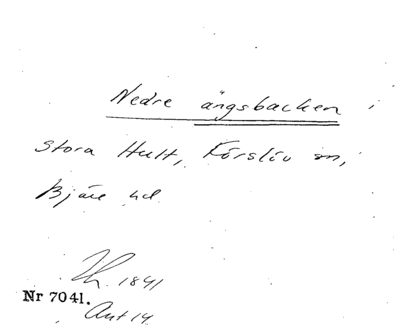 Nedre ängsbacken i
Stora Hult, Förslöv sn,
Bjäre hd
1841
Nr 7041.
Akt 14